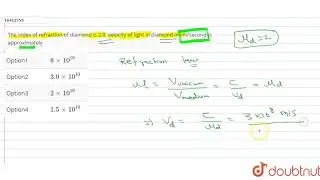 The index of refraction of diamond is 2.0. velocity of light in diamond in cm/second is
approximately
Option1 6 × 10¹⁰
Option2 3.0 × 10¹⁰
Option3 2 × 10¹⁰
Option4 1.5 × 10¹⁰
μd = 2
Refraction
μ = Vvaccum / Vmedium = C / Vd = μd
⇒ Vd = C / μd = 3 × 10⁸ m/s
doubtnut